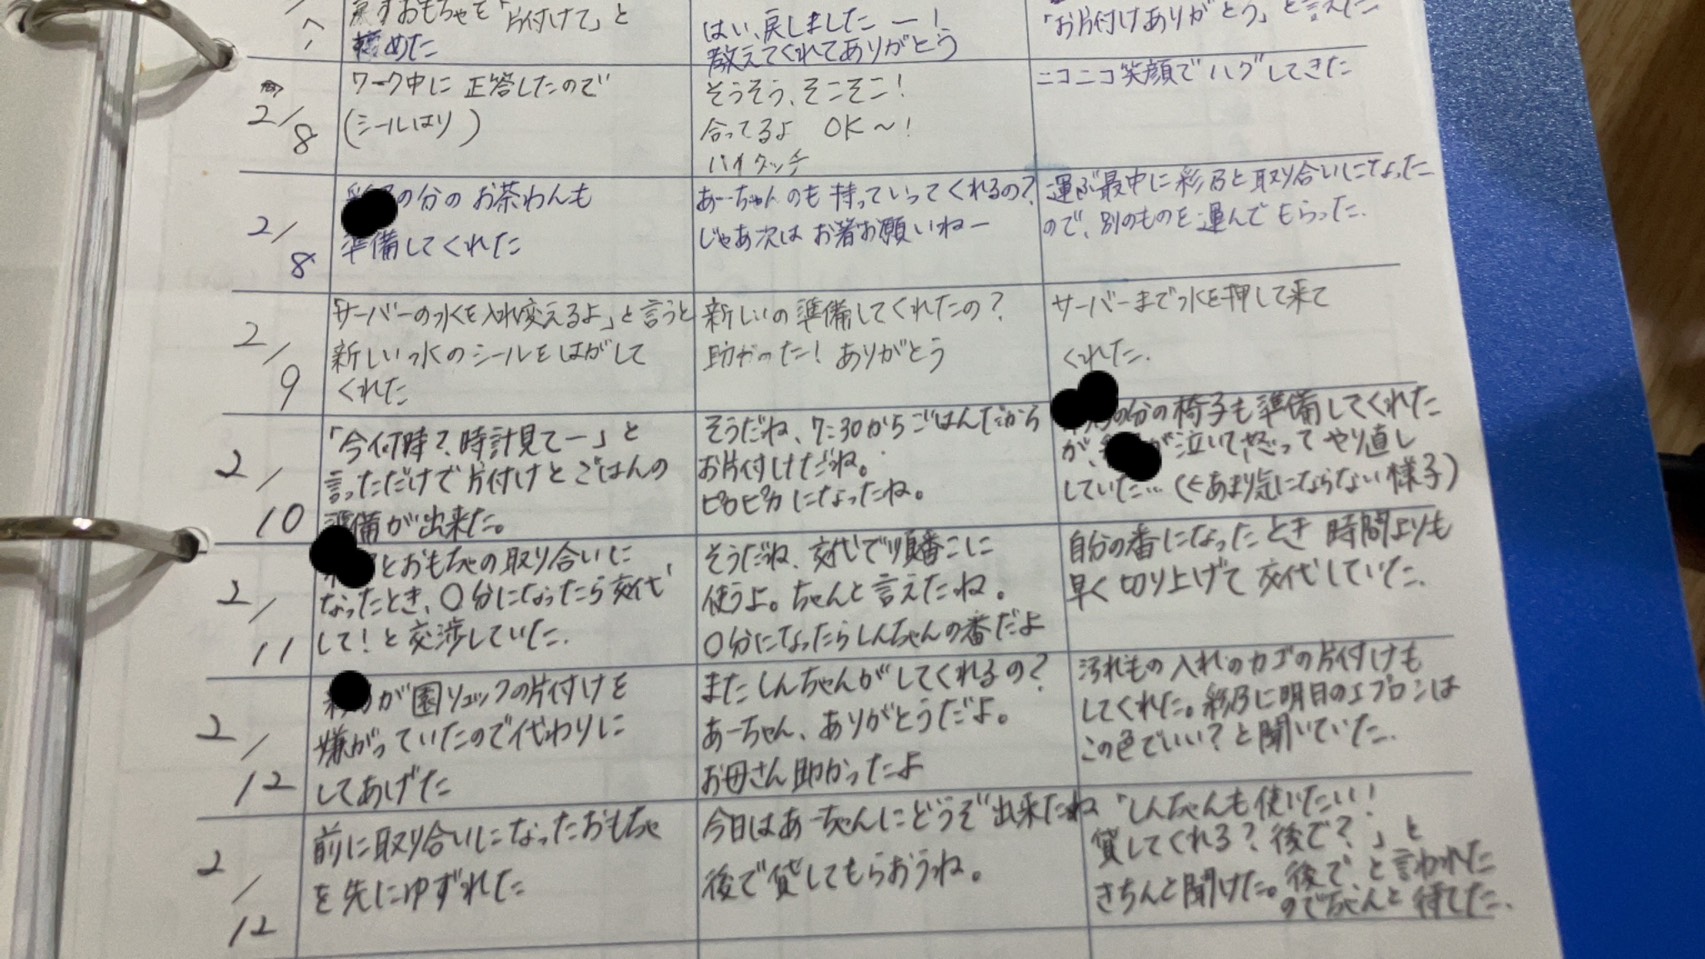 戻すおもちゃを「片付けて」と
褒めた
はい、戻しましたー！
教えてくれてありがとう
「お片付けありがとう」と言えた
2/8
ワーク中に正答したので
(シールはり)
そうそう、そこそこ！
合ってるよ OK〜！
ハイタッチ
ニコニコ笑顔でハグしてきた
2/8
の分のお茶わんも
準備してくれた
あーちゃんのも持っていってくれるの？
じゃあ次はお箸お願いねー
運ぶ最中に彩乃と取り合いになった
ので、別のものを運んでもらった.
2/9
「サーバーの水を入れ変えるよ」と言うと
新しい水のシールをはがして
くれた
新しいの準備してくれたの？
助かった！ありがとう
サーバーまで水を押して来て
くれた.
2/10
「今何時？時計見てー」と
言っただけで片付けとごはんの
準備が出来た。
そうだね、7:30からごはんだから
お片付けだね。
ピカピカになったね。
の分の椅子も準備してくれた
が、が泣いて怒ってやり直し
していた…(←あまり気にならない様子)
2/11
とおもちゃの取り合いに
なったとき、〇分になったら交代
して！と交渉していた.
そうだね、交代で順番こに
使うよ。ちゃんと言えたね。
〇分になったらしんちゃんの番だよ
自分の番になったとき時間よりも
早く切り上げて交代していた.
2/12
が園リュックの片付けを
嫌がっていたので代わりに
してあげた
またしんちゃんがしてくれるの？
あーちゃん、ありがとうだよ。
お母さん助かったよ
汚れもの入れのカゴの片付けも
してくれた。彩乃に明日のエプロンは
この色でいい？と聞いていた.
2/12
前に取り合いになったおもちゃ
を先にゆずれた
今日はあーちゃんにどうぞ出来たね
後で貸してもらおうね。
「しんちゃんも使いたい！
貸してくれる？後で？」と
きちんと聞けた。後でと言われた
のでちゃんと待てた.